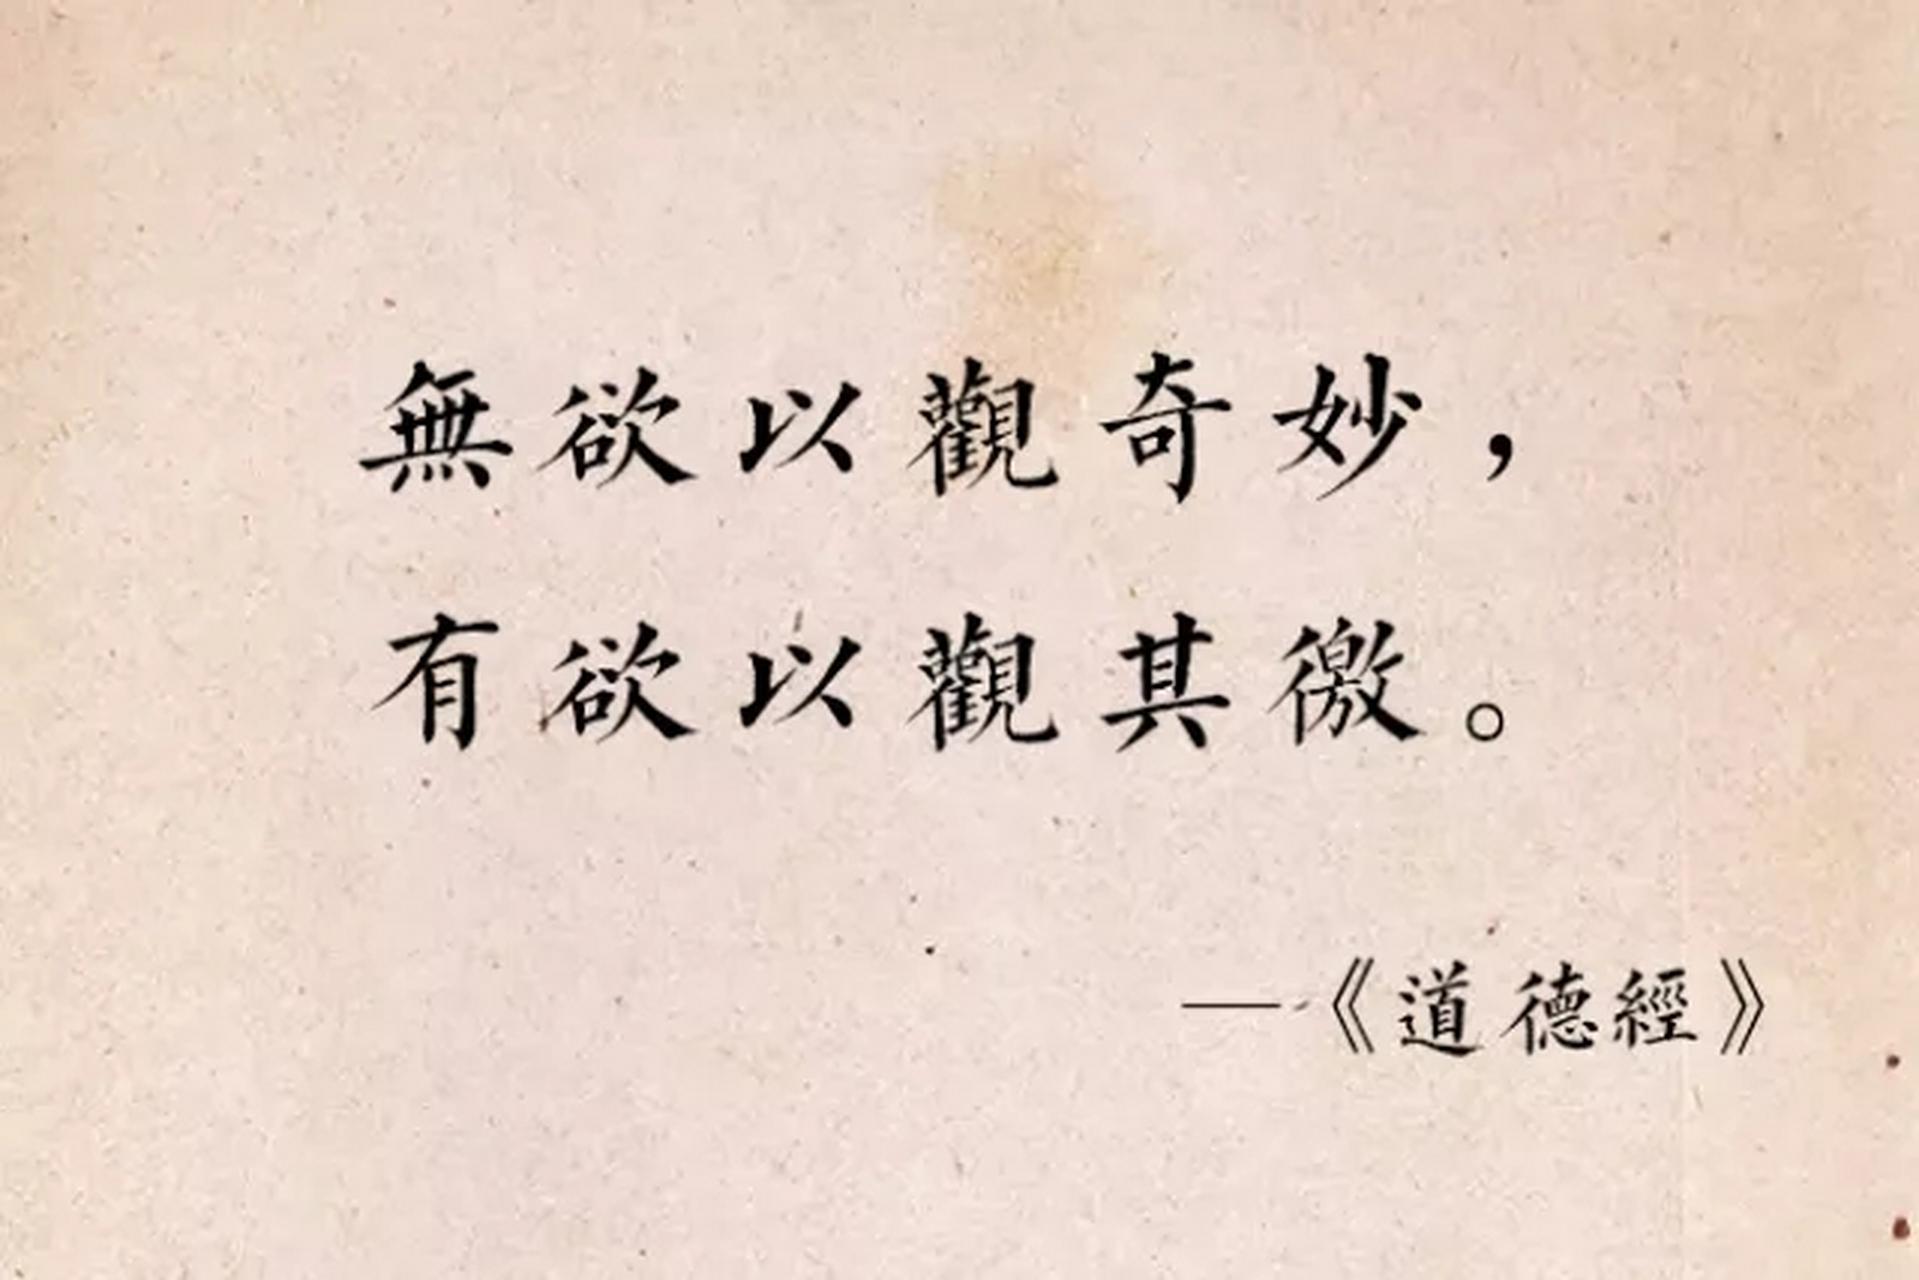 無欲以觀奇妙，
有欲以觀其徼。
—《道德經》